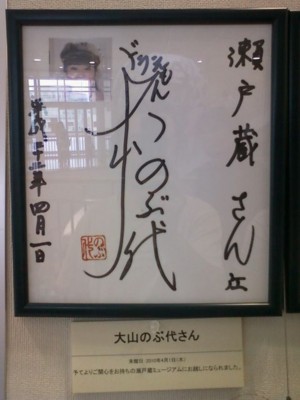 瀬戸蔵さん江
ドラえもん
大山のぶ代
平成二十二年四月一日
のぶ代
大山のぶ代さん
来館日 2010年4月1日(木)
予てよりご関心をお持ちの瀬戸蔵ミュージアムにお越しになられました。